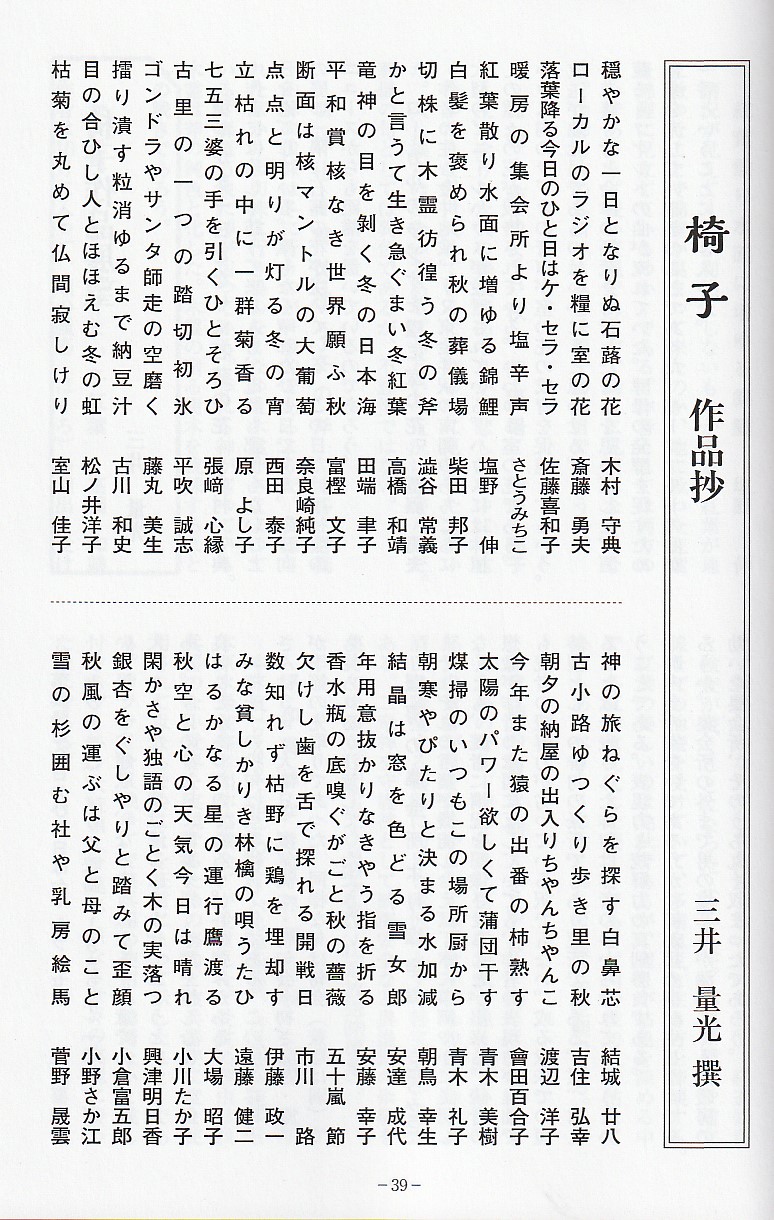 椅子 作品抄 三井 量光 撰
穏やかな一日となりぬ石蕗の花 木村 守典
ローカルのラジオを糧に室の花 斎藤 勇夫
落葉降る今日のひと日はケ・セラ・セラ 佐藤喜和子
暖房の集会所より塩辛声 さとうみちこ
紅葉散り水面に増ゆる錦鯉 塩野 伸
白髪を褒められ秋の葬儀場 柴田 邦子
切株に木霊彷徨う冬の斧 澁谷 常義
かと言うて生き急ぐまい冬紅葉 高橋 和靖
竜神の目を剥く冬の日本海 田端 聿子
平和賞核なき世界願ふ秋 富樫 文子
断面は核マントルの大葡萄 奈良崎純子
点点と明りが灯る冬の宵 西田 泰子
立枯れの中に一群菊香る 原 よし子
七五三婆の手を引くひとそろひ 張﨑 心縁
古里の一つの踏切初氷 平吹 誠志
ゴンドラやサンタ師走の空磨く 藤丸 美生
擂り潰す粒消ゆるまで納豆汁 古川 和史
目の合ひし人とほほえむ冬の虹 松ノ井洋子
枯菊を丸めて仏間寂しけり 室山 佳子
神の旅ねぐらを探す白鼻芯 結城 廿八
古小路ゆつくり歩き里の秋 吉住 弘幸
朝夕の納屋の出入りちゃんちゃんこ 渡辺 洋子
今年また猿の出番の柿熟す 會田百合子
太陽のパワー欲しくて蒲団干す 青木 美樹
煤掃のいつもこの場所厨から 青木 礼子
朝寒やぴたりと決まる水加減 朝鳥 幸生
結晶は窓を色どる雪女郎 安達 成代
年用意抜かりなきやう指を折る 安藤 幸子
香水瓶の底嗅ぐがごと秋の薔薇 五十嵐 節
欠けし歯を舌で探れる開戦日 市川 路
数知れず枯野に鶏を埋却す 伊藤 政一
みな貧しかりき林檎の唄うたひ 遠藤 健二
はるかなる星の運行鷹渡る 大場 昭子
秋空と心の天気今日は晴れ 小川たか子
閑かさや独語のごとく木の実落つ 興津明日香
銀杏をぐしやりと踏みて歪顔 小倉富五郎
秋風の運ぶは父と母のこと 小野さか江
雪の杉囲む社や乳房絵馬 菅野 晟雲
－39－